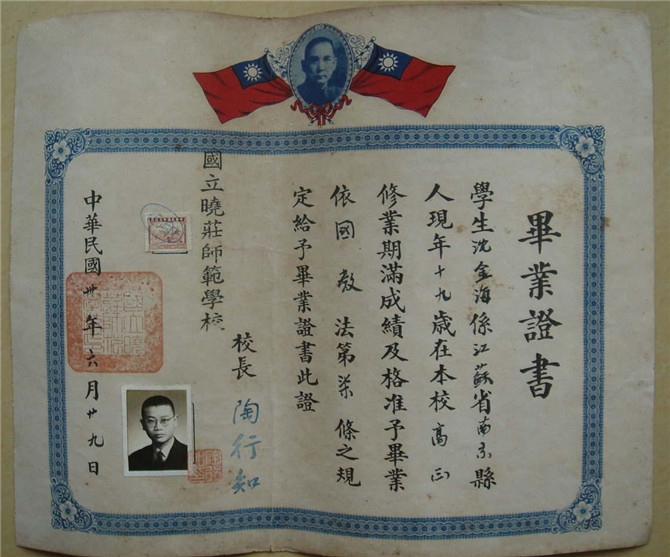 畢業證書
學生沈金海係江蘇省南京縣
人現年十九歲在本校高
修業期滿成績及格准予畢業
依國教法第柒條之規
定給予畢業證書此證
國立曉莊師範學校
校長 陶行知
中華民國卅年六月廿九日